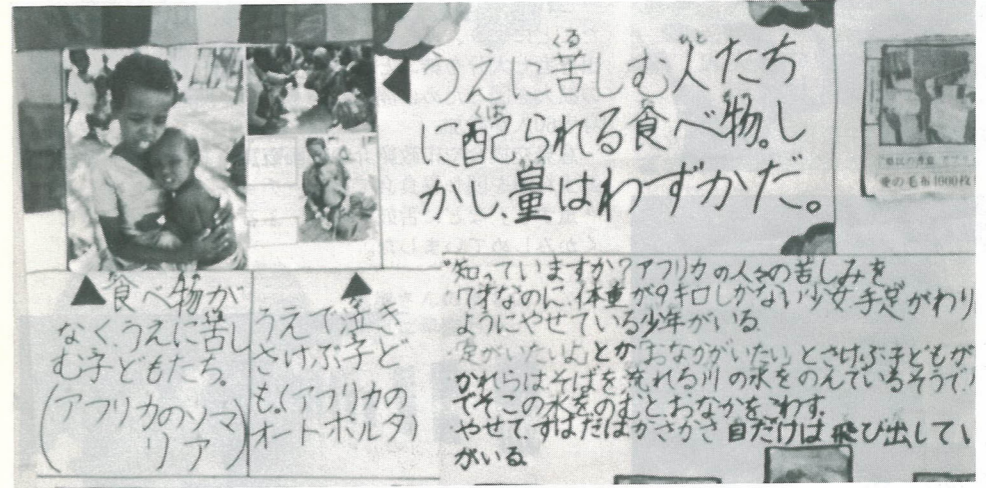 うえに苦しむ人たち
に配られる食べ物。し
かし、量はわずかだ。
食べ物が
なく、うえに苦し
む子どもたち。
(アフリカのソマ
リア)
うえで泣き
さけぶ子ど
も。(アフリカの
オートボルタ)
知っていますか?アフリカの人々の苦しみを
7才なのに、体重が9キロしかない少女、手足がわり
ようにやせている少年がいる
いたいよ」とか「おなかがいたい」とさけぶ子どもが
かれらはそばを流れる川の水をのんでいるそうで
でそこの水をのむと、おなかをこわす。
やせて、すはだはかさかさ 目だけは飛び出してい
がいる
愛の毛布1000枚